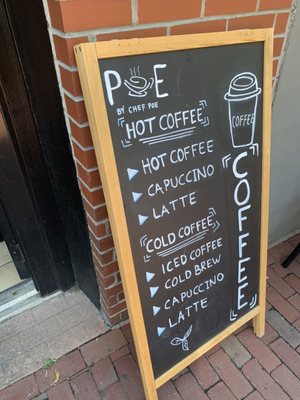 POE
BY CHEF POE
HOT COFFEE
HOT COFFEE
CAPUCCINO
LATTE
COLD COFFEE
ICED COFFEE
COLD BREW
CAPUCCINO
LATTE
COFFEE
COFFEE